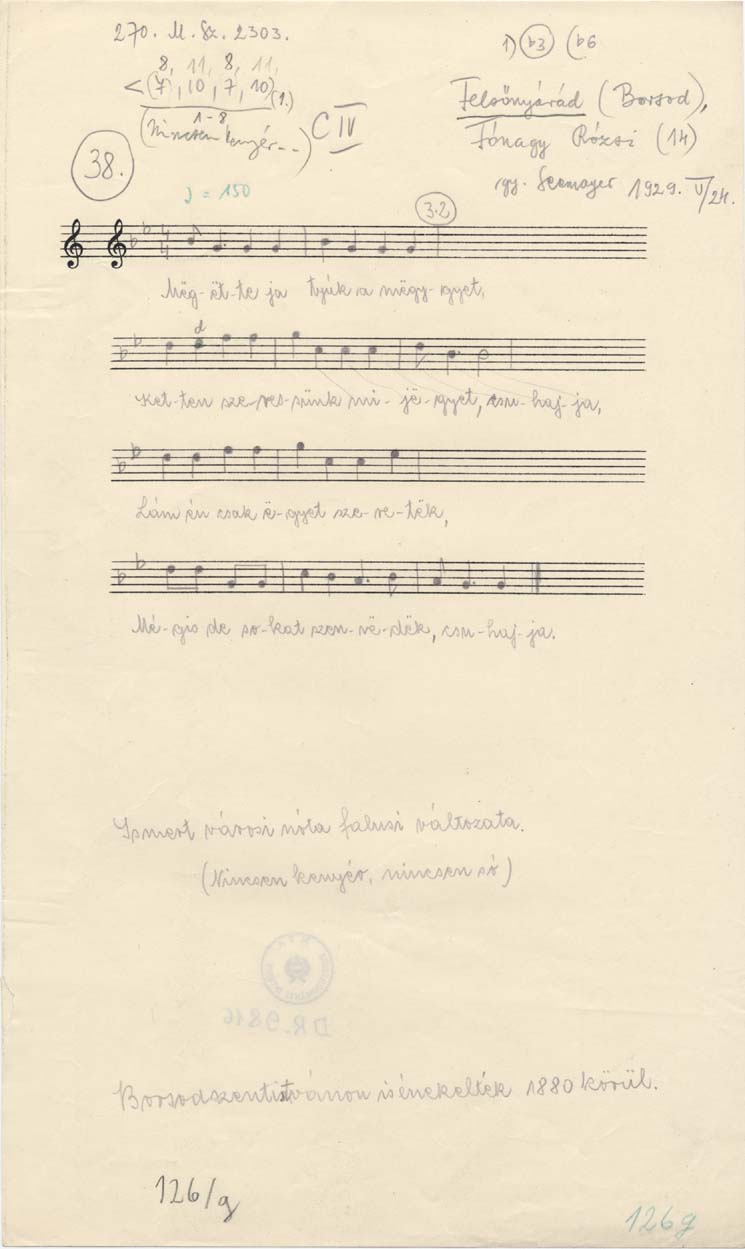 270. M. Sz. 2303.
1) b3 (b6
8, 11, 8, 11,
< (7), 10, 7, 10) (1.)
1-8
(Nincsen kenyér--)
C IV
Felsőnyárád (Borsod),
Fónagy Rózsi (14)
38.
gy. Seemayer 1929. V/24.
♩ = 150
3.2
4 4
Mëg-ët-te ja tyúk a mëgy-gyet,
d
Ket-ten sze-res-sünk mi-jë-gyet, csu-haj-ja,
Lám én csak ë-gyet sze-re-tëk,
Mé-gis de so-kat szen-vë-dëk, csu-haj-ja.
Ismert városi nóta falusi változata.
(Nincsen kenyér, nincsen só)
DR. 9816
Borsodszentistvánon is énekelték 1880 körül.
126/g
126 g